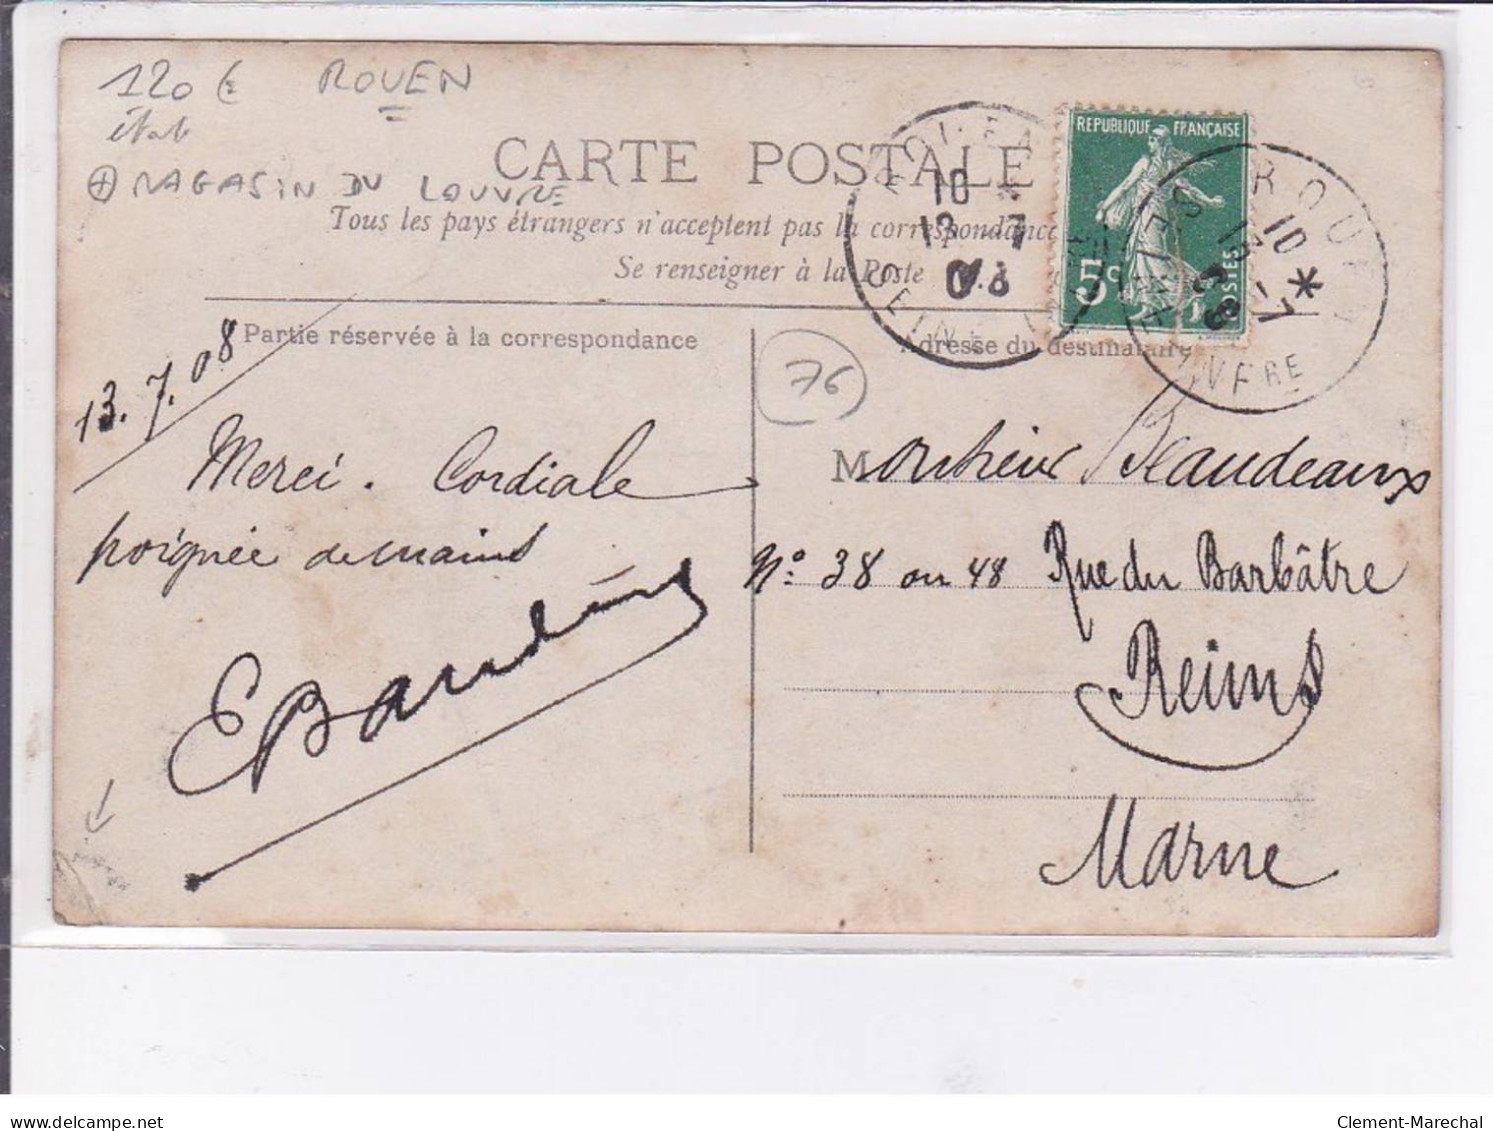 120 € ROUEN
CARTE POSTALE
+ MAGASIN DU LOUVRE
Tous les pays étrangers n'acceptent pas la correspondance
Se renseigner à la Poste
REPUBLIQUE FRANÇAISE
5c
POSTES
10
7
ROUEN
10
7
SEINE
Partie réservée à la correspondance
Adresse du destinataire
76
13.7.08
Merci. Cordiale
poignée de mains
EBaudin
Monsieur Beaudeaux
N°: 38 ou 48 Rue du Barbâtre
Reims
Marne
delcampe.net
Clement-Marechal